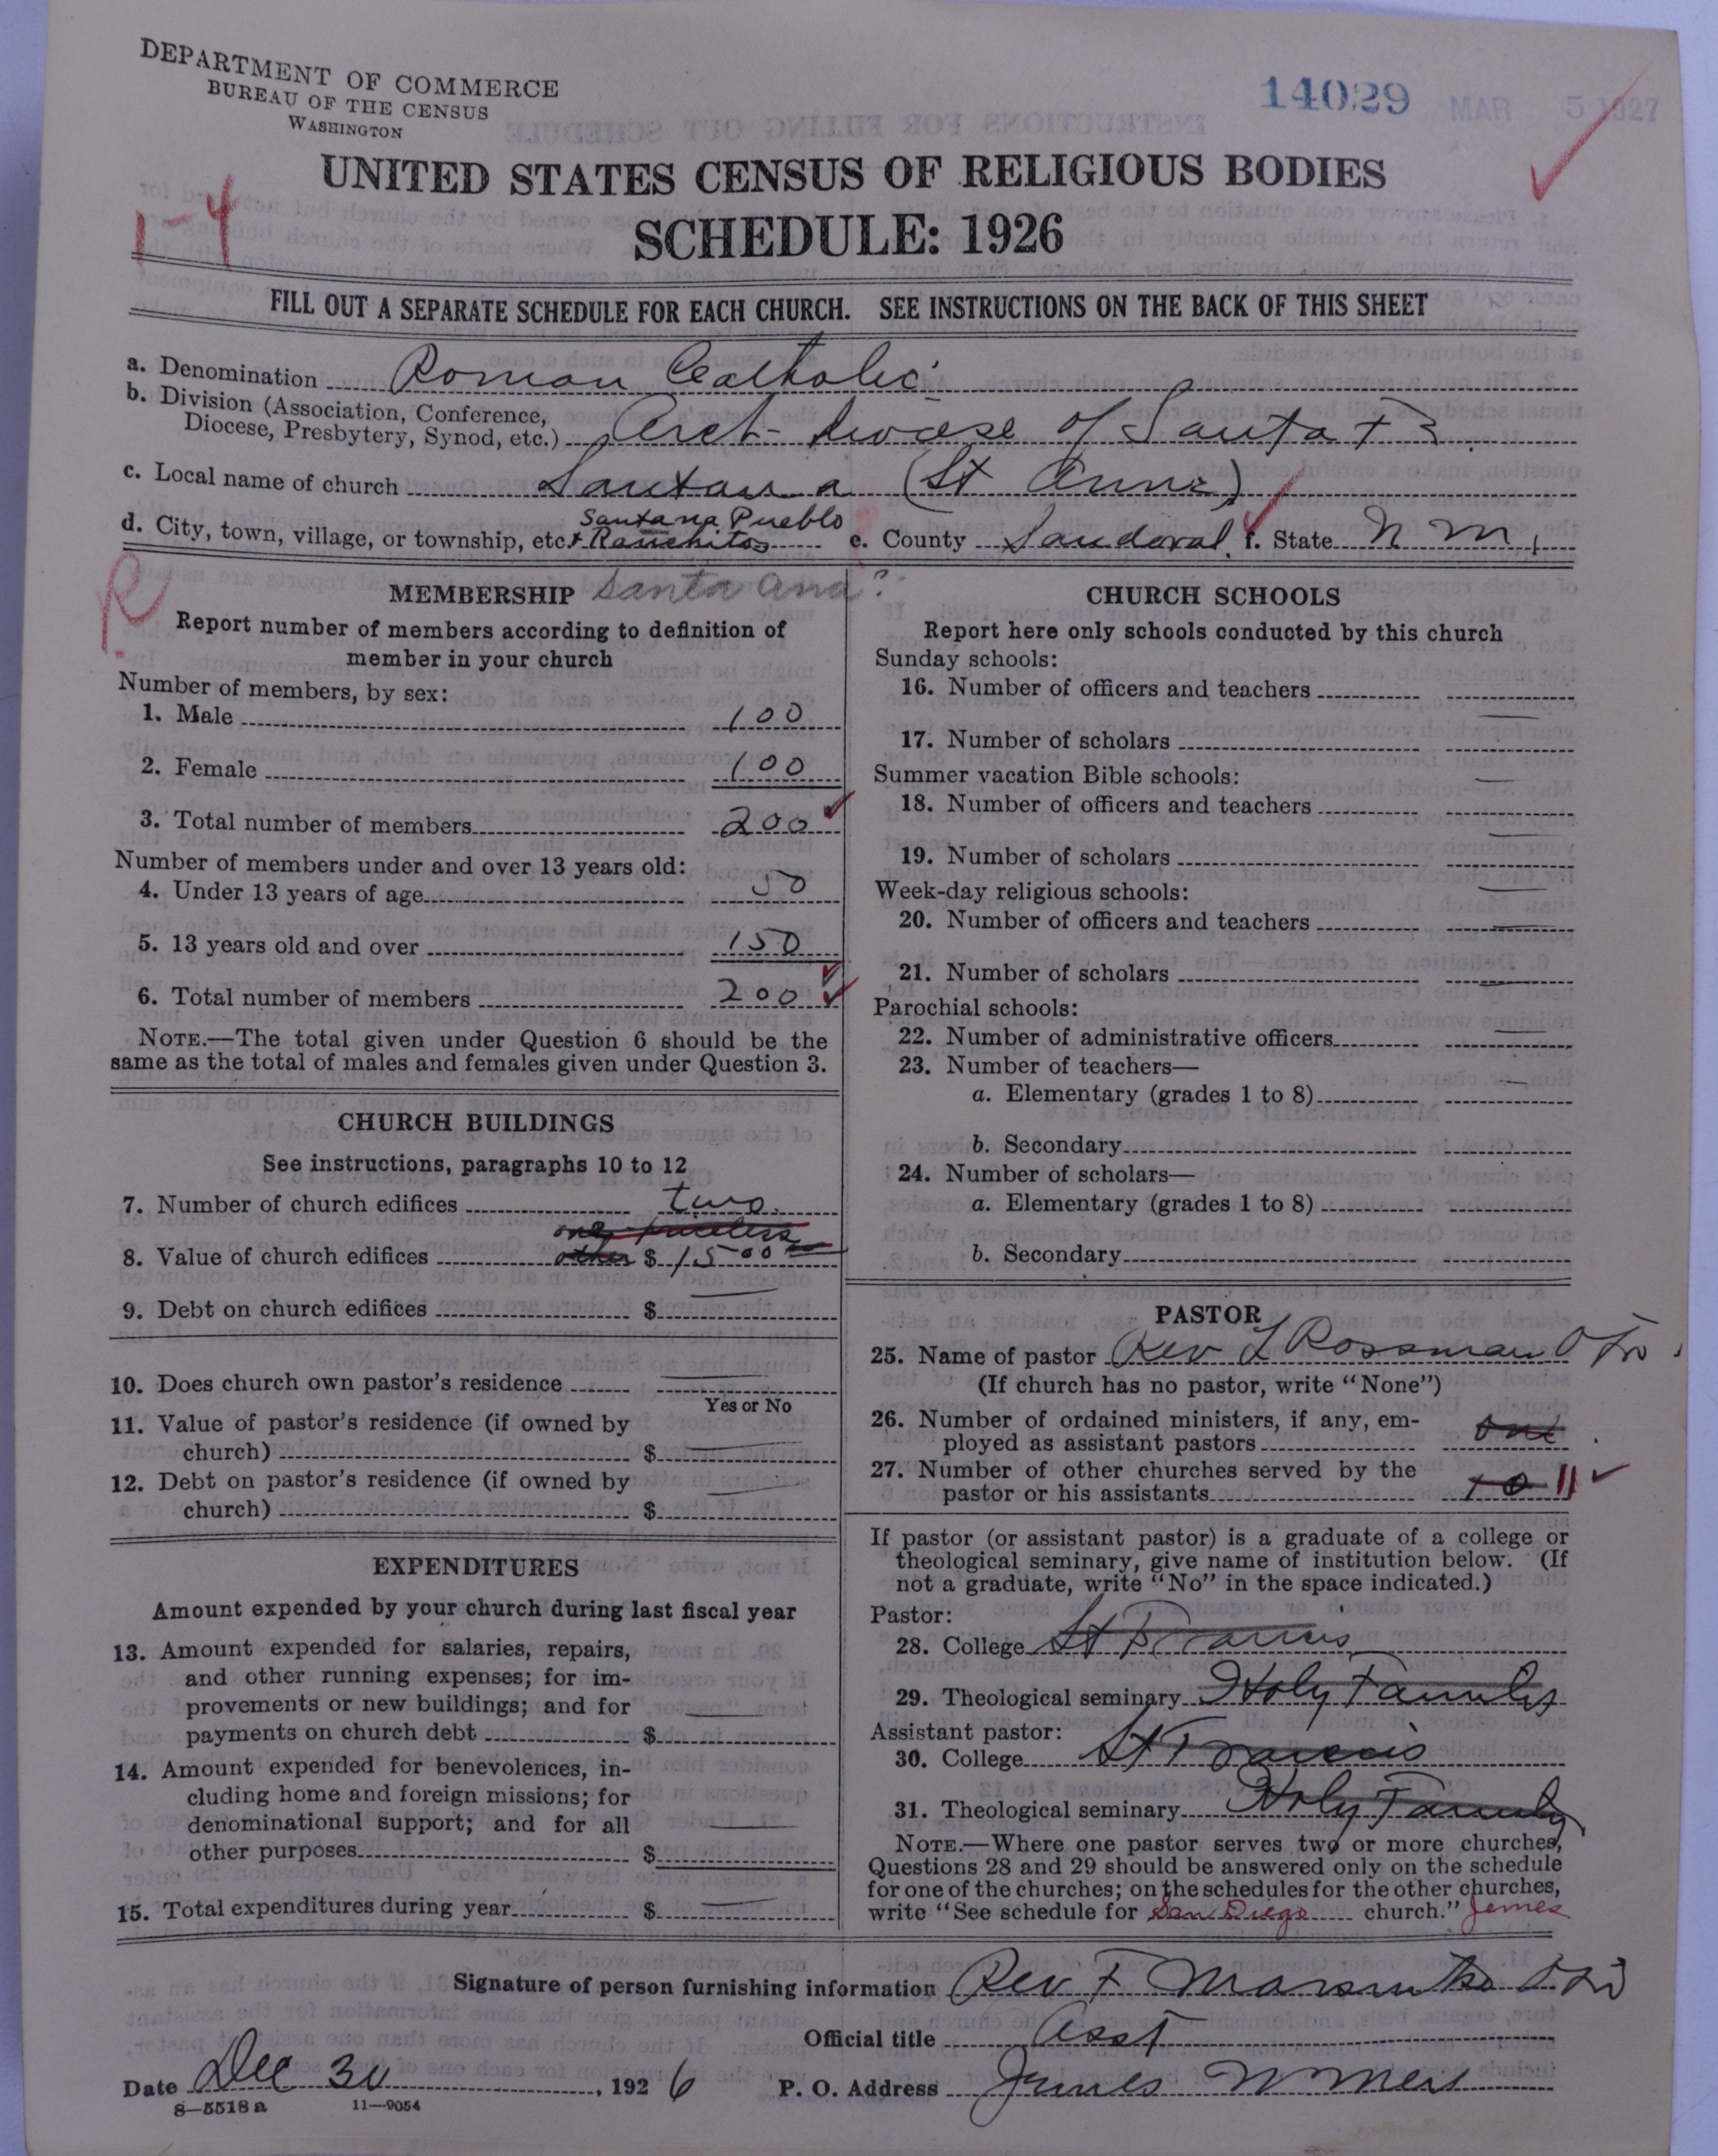 DEPARTMENT OF COMMERCE
BUREAU OF THE CENSUS
WASHINGTON
14029 MAR 5 1927
UNITED STATES CENSUS OF RELIGIOUS BODIES
1-4
SCHEDULE: 1926
FILL OUT A SEPARATE SCHEDULE FOR EACH CHURCH. SEE INSTRUCTIONS ON THE BACK OF THIS SHEET
a. Denomination Roman Catholic
b. Division (Association, Conference,
Diocese, Presbytery, Synod, etc.) Arch-diocese of Santa Fe
c. Local name of church Santana (St Anne)
Santana Pueblo
d. City, town, village, or township, etc. + Ranchitos e. County Sandoval f. State N M
R
MEMBERSHIP Santa Ana?
Report number of members according to definition of
member in your church
Number of members, by sex:
1. Male 100
2. Female 100
3. Total number of members 200
Number of members under and over 13 years old:
4. Under 13 years of age 50
5. 13 years old and over 150
6. Total number of members 200
NOTE.—The total given under Question 6 should be the
same as the total of males and females given under Question 3.
CHURCH BUILDINGS
See instructions, paragraphs 10 to 12
7. Number of church edifices two
one priceless
8. Value of church edifices other $ 1500
9. Debt on church edifices $
10. Does church own pastor's residence
Yes or No
11. Value of pastor's residence (if owned by
church) $
12. Debt on pastor's residence (if owned by
church) $
EXPENDITURES
Amount expended by your church during last fiscal year
13. Amount expended for salaries, repairs,
and other running expenses; for im-
provements or new buildings; and for
payments on church debt $
14. Amount expended for benevolences, in-
cluding home and foreign missions; for
denominational support; and for all
other purposes $
15. Total expenditures during year $
CHURCH SCHOOLS
Report here only schools conducted by this church
Sunday schools:
16. Number of officers and teachers
17. Number of scholars
Summer vacation Bible schools:
18. Number of officers and teachers
19. Number of scholars
Week-day religious schools:
20. Number of officers and teachers
21. Number of scholars
Parochial schools:
22. Number of administrative officers
23. Number of teachers—
a. Elementary (grades 1 to 8)
b. Secondary
24. Number of scholars—
a. Elementary (grades 1 to 8)
b. Secondary
PASTOR
25. Name of pastor Rev L Rossman
(If church has no pastor, write "None")
26. Number of ordained ministers, if any, em-
ployed as assistant pastors one
27. Number of other churches served by the
pastor or his assistants 10 11
If pastor (or assistant pastor) is a graduate of a college or
theological seminary, give name of institution below. (If
not a graduate, write "No" in the space indicated.)
Pastor:
28. College St Francis
29. Theological seminary Holy Family
Assistant pastor:
30. College St Francis
31. Theological seminary Holy Family
NOTE.—Where one pastor serves two or more churches,
Questions 28 and 29 should be answered only on the schedule
for one of the churches; on the schedules for the other churches,
write "See schedule for San Diego church." Jemes
Signature of person furnishing information Rev F
Official title Asst
Date Dec 30, 1926 P. O. Address Jemes N Mex
8—5518 a 11—9054